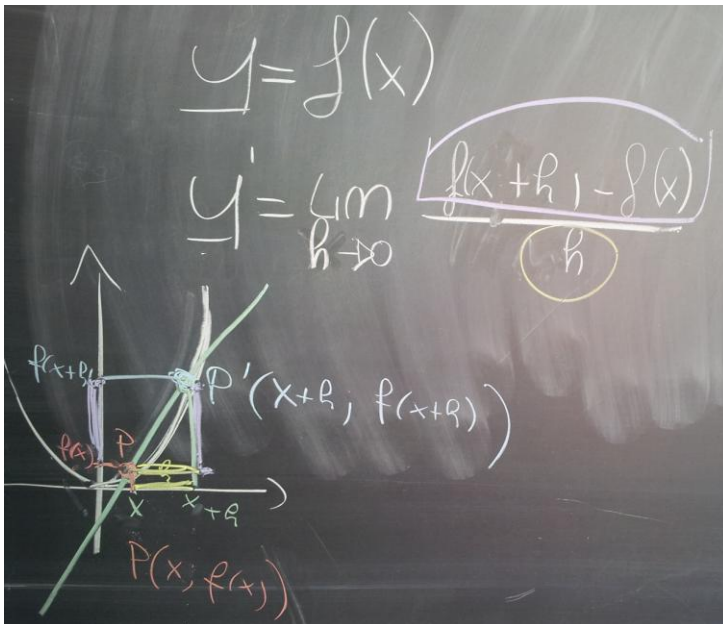 y = f(x)
y' = lim f(x+h) - f(x)
h→0 h
f(x+h)
P'(x+h; f(x+h))
f(x) P
h
x x+h
P(x; f(x))